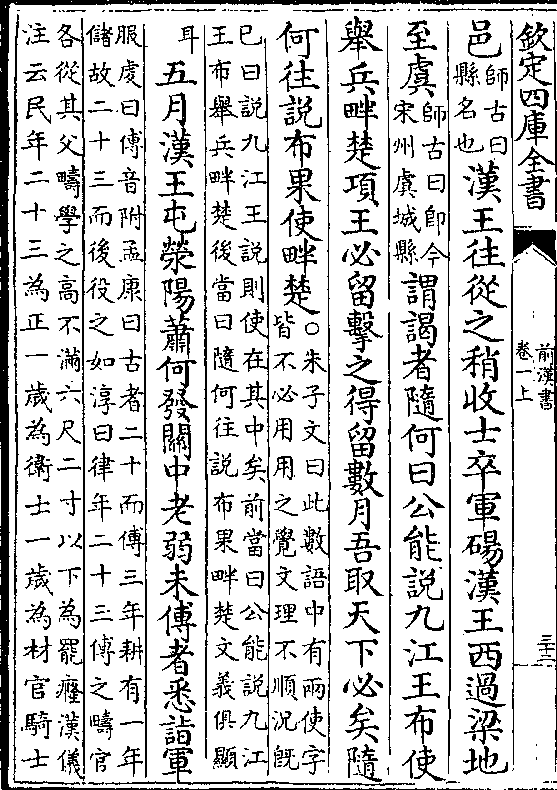 欽定四庫全書
前漢書
卷一上
邑師古曰縣名也漢王往從之稍收士卒軍碭漢王西過梁地
至虞師古曰即今宋州虞城縣謂謁者隨何曰公能說九江王布使
舉兵畔楚項王必留擊之得留數月吾取天下必矣隨
何往說布果使畔楚○朱子文曰此數語中有兩使字
皆不必用用之覺文理不順況既
巳曰說九江王說則使在其中矣前當曰公能說九江
王布舉兵畔楚後當曰隨何往說布果畔楚文義俱顯
耳五月漢王屯滎陽蕭何發關中老弱未傅者悉詣軍
服虔曰傅音附孟康曰古者二十而傅三年耕有一年
儲故二十三而後役之如淳曰律年二十三傅之疇官
各從其父疇學之高不滿六尺二寸以下為罷癃漢儀
注云民年二十三為正一歲為衛士一歲為材官騎士